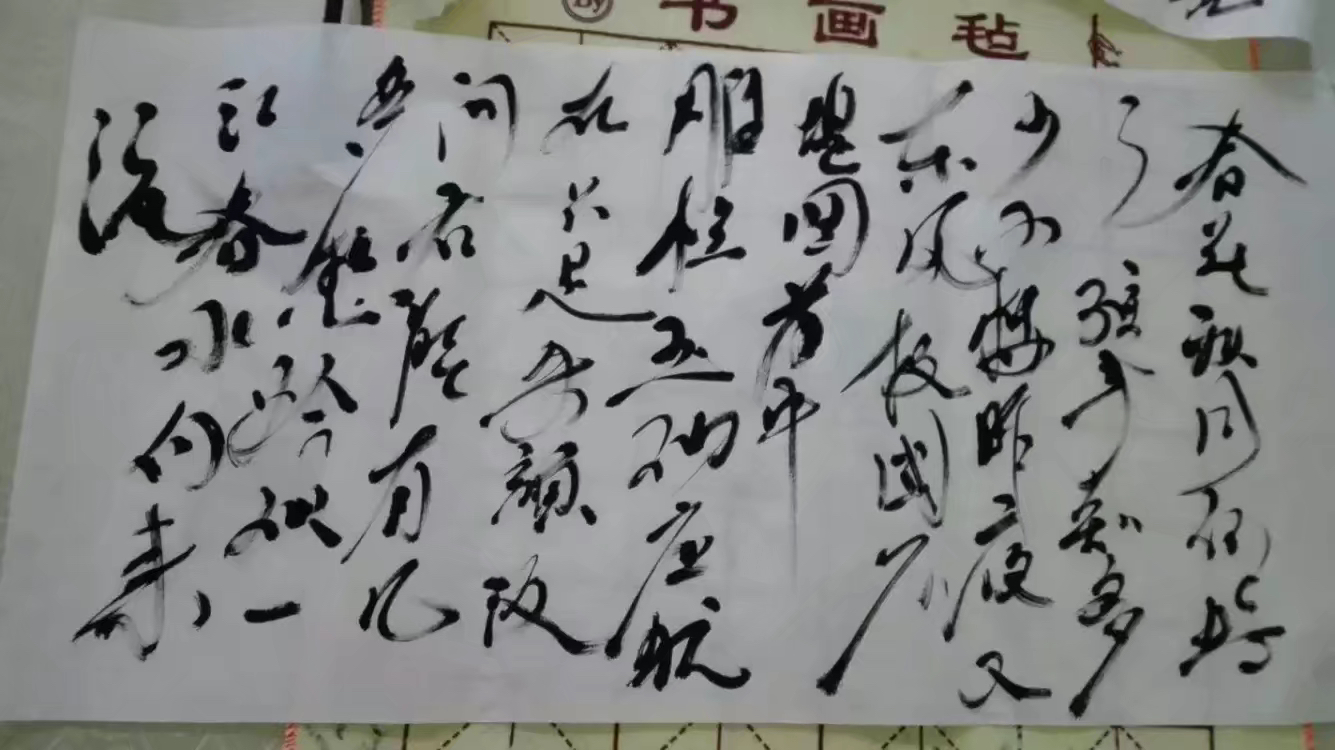 书画毡
春花秋月何时
了往事知多
少小楼昨夜又
东风故国不
堪回首中
雕栏玉砌应犹
在只是朱颜改
问君能有几
多愁恰似一
江春水向东
流